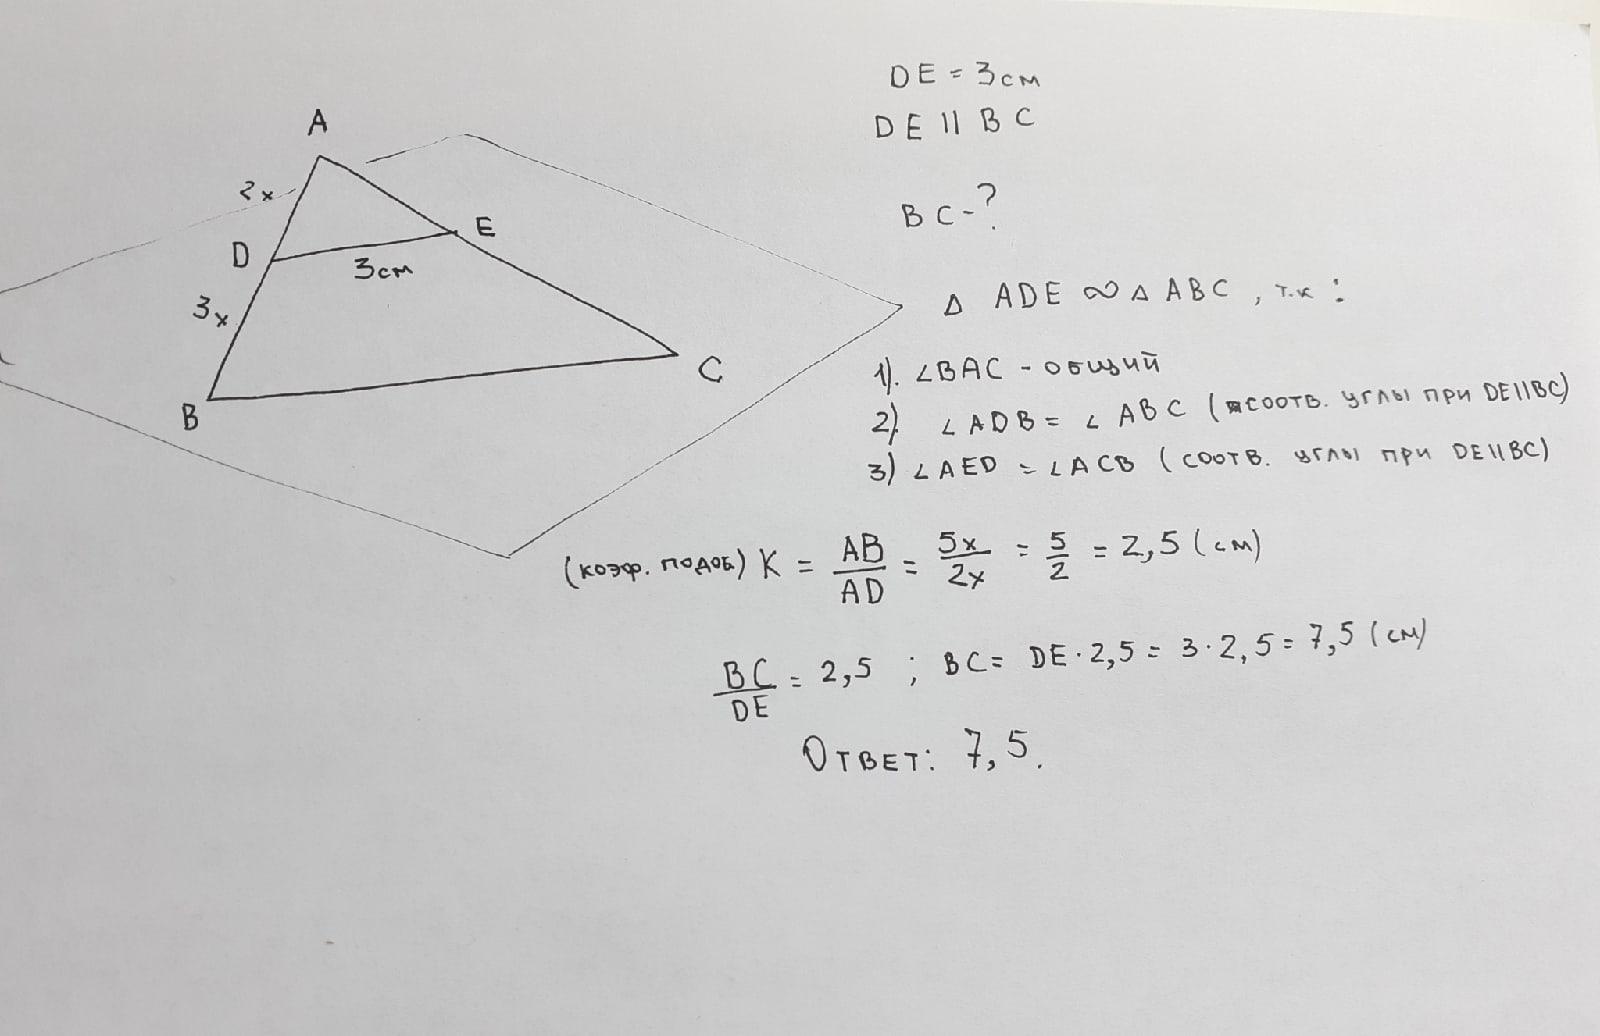 DE = 3см
DE || BC
BC - ?
A
2x
D
E
3см
3x
B
C
Δ ADE ∞ Δ ABC , т.к :
1). ∠BAC - общий
2) ∠ADB = ∠ABC (соотв. углы при DE||BC)
3) ∠AED = ∠ACB (соотв. углы при DE||BC)
(коэф. подоб) K = AB/AD = 5x/2x = 5/2 = 2,5 (см)
BC/DE = 2,5 ; BC = DE · 2,5 = 3 · 2,5 = 7,5 (см)
Ответ: 7,5.